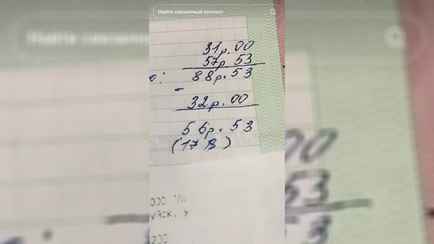 Найти связанный контент
31р.00
57р.53
88р.53
-
32р.00
56р.53
(17 В)